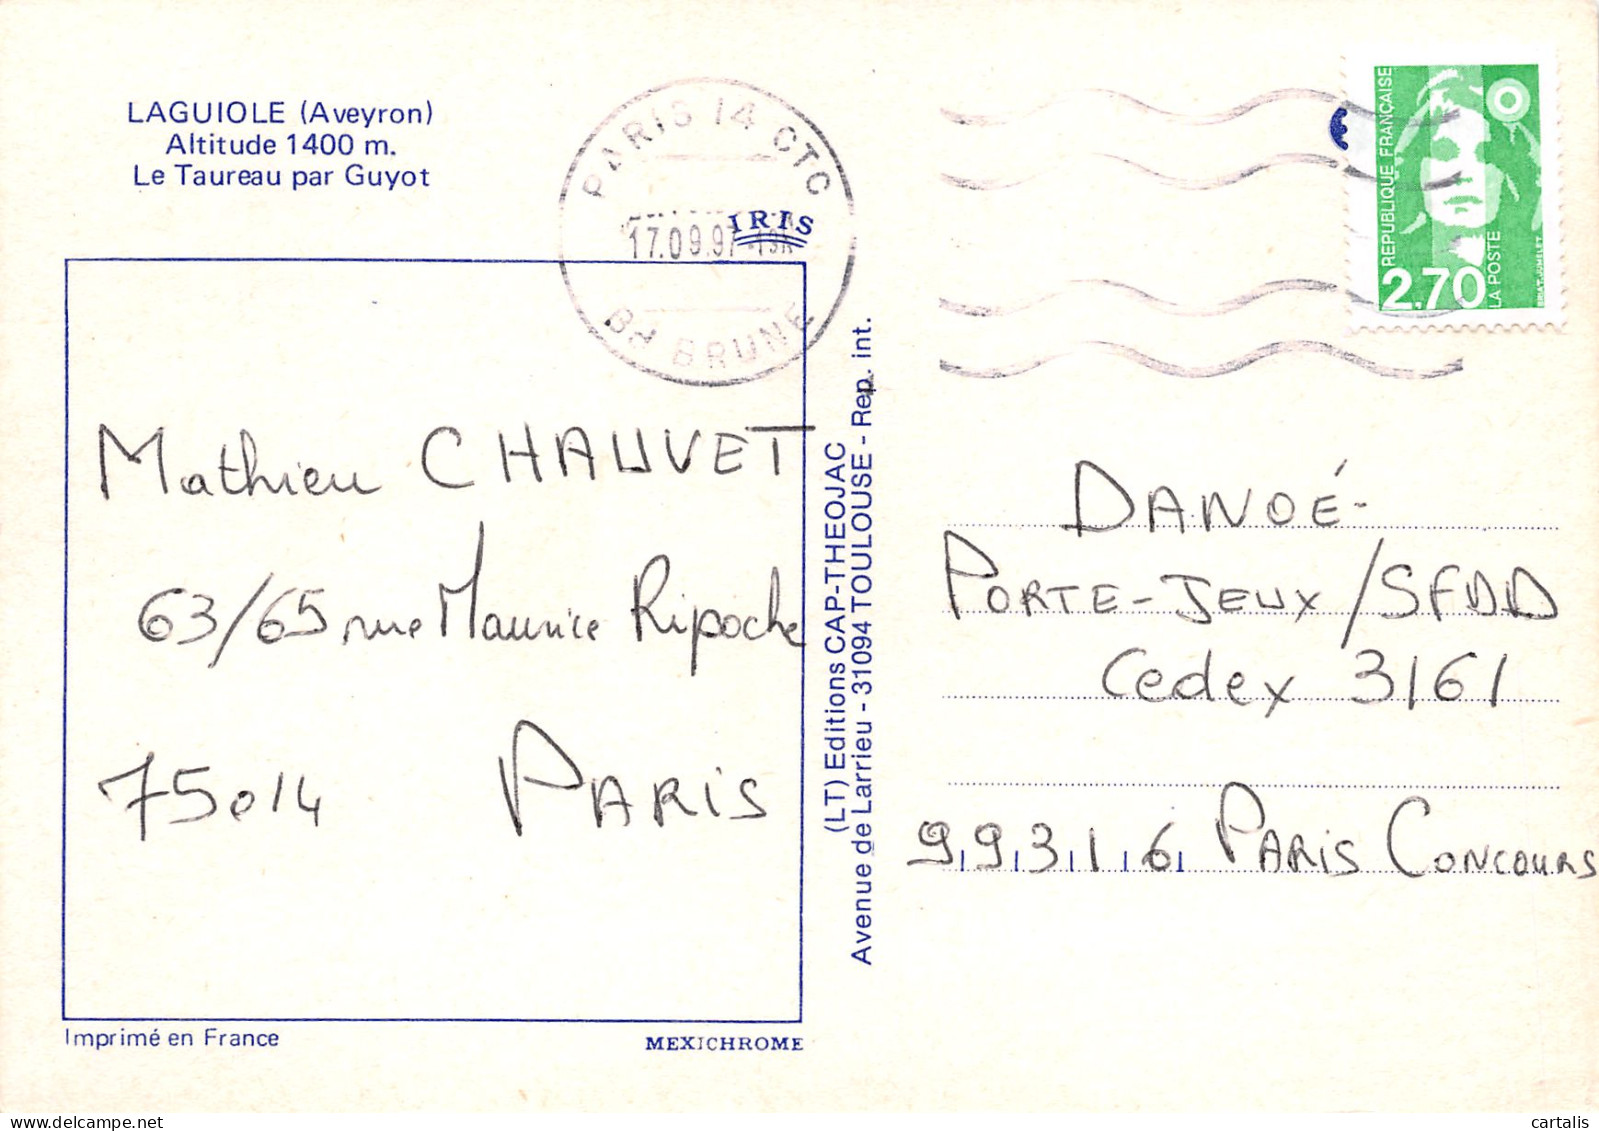 LAGUIOLE (Aveyron)
Altitude 1400 m.
Le Taureau par Guyot
PARIS 14 CTC
17.09.97-19H
BD BRUNE
IRIS
REPUBLIQUE FRANÇAISE
2,70
LA POSTE
BRIAT.JUMELET
Mathieu CHAUVET
63/65 rue Maurice Ripoche
75014 PARIS
(LT) Editions CAP-THEOJAC
Avenue de Larrieu - 31094 TOULOUSE - Rep. int.
DANOÉ-
PORTE-JEUX/SFDD
Cedex 3161
99316 PARIS CONCOURS
Imprimé en France
MEXICHROME
cartalis